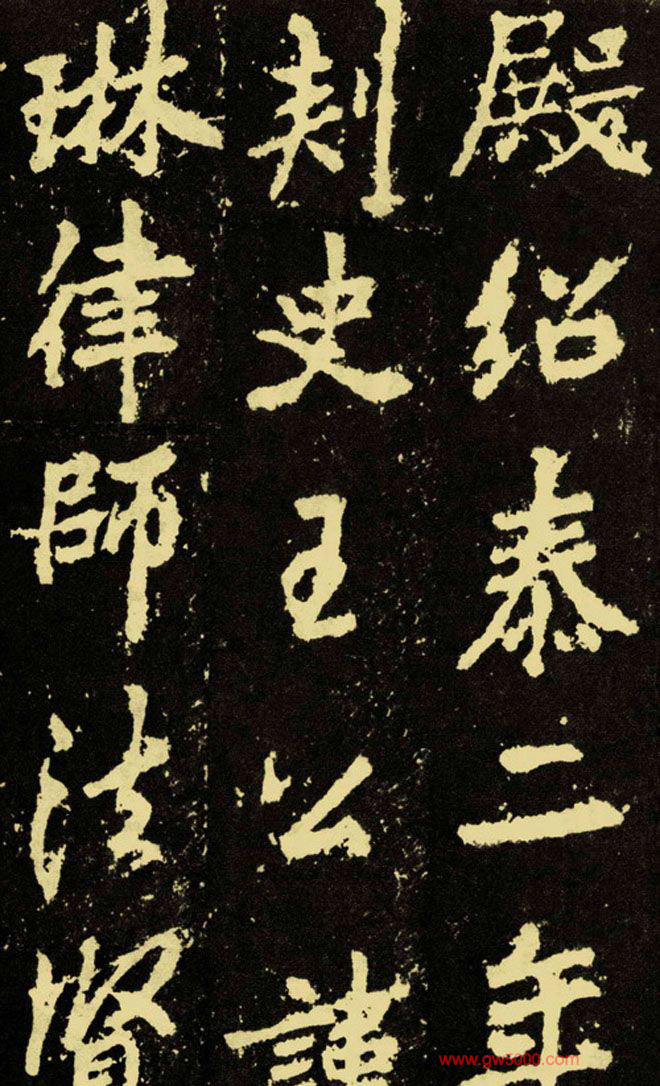 殿紹泰二年
刺史王公謹
琳律師法賢
www.gw5000.com